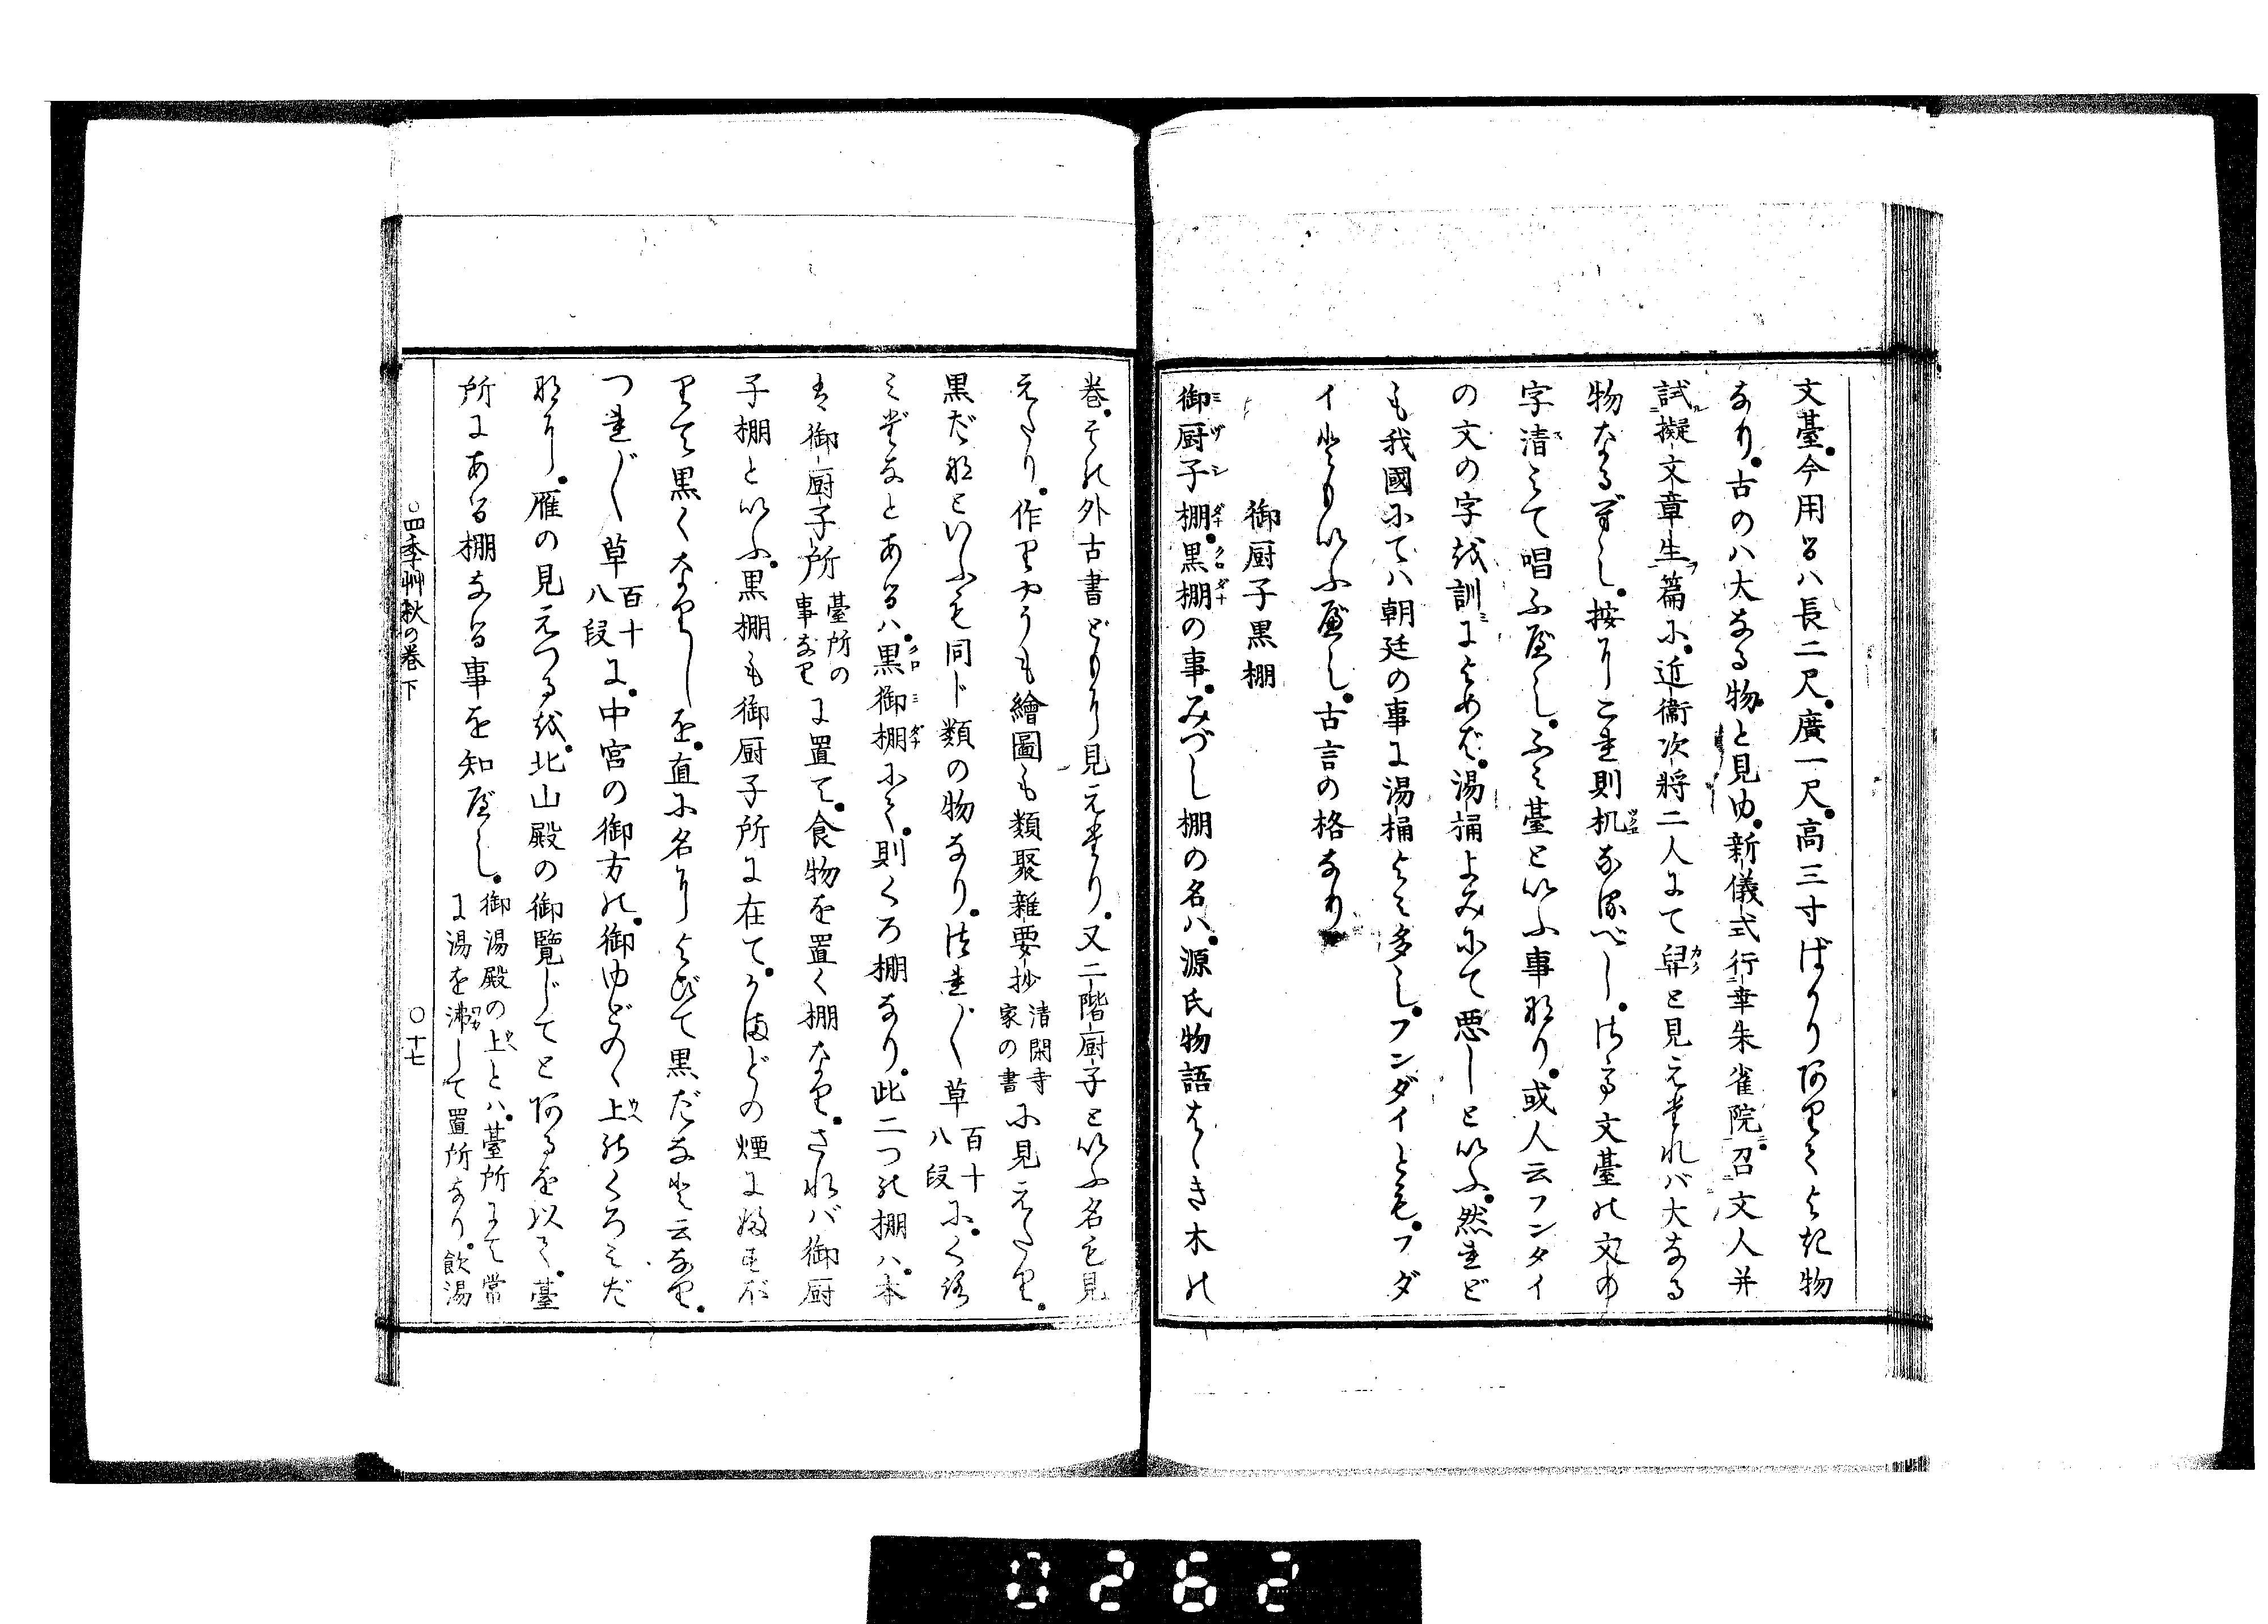 文臺。今用るハ長二尺。廣一尺。高三寸ばかり阿りてよき物
なり。古のハ大なる物と見ゆ。新儀式行幸朱雀院。召文人并
試擬文章生篇に。近衛次將二人にて舁と見えたれバ大なる
物なるべし。按りこれ則机なるべし。
字清みて唱ふべし。ふみ臺といふ事なり。或人云フンタイ
の文の字を訓によめば。湯桶よみにて悪しといふ。然れど
も我國にてハ朝廷の事に湯桶よみ多し。フンダイとも。フダ
イともいふべし。古言の格なり
御厨子黒棚
御厨子棚。黒棚の事。みづし棚の名ハ。源氏物語はゝき木の
巻。その外古書どもに見えたり。又二階厨子といふ名も見
えたり。作りやうも繪圖も類聚雜要抄清閑寺家の書に見えたり。
黒だなといふも同じ類の物なり。つれ〴〵草百十八段に。くろ
みだなとあるハ。黒御棚にて。則くろ棚なり。此二つの棚ハ。本
は御厨子所臺所の事なりに置て。食物を置く棚なり。されバ御厨
子棚といふ。黒棚も御厨子所に在て。かまどの煙に
りて黒くなりしを。直に名によびて黒だなと云なり。
つれ〴〵草百十八段に。中宮の御方の。御ゆどのゝ上のくろみだ
なに。雁の見えつるを。北山殿の御覧じてと阿るを以て。臺
所にある棚なる事を知べし。御湯殿の上とハ。臺所にて常に湯を沸して置所なり。飲湯
○四季艸秋の巻下
○十七
0262